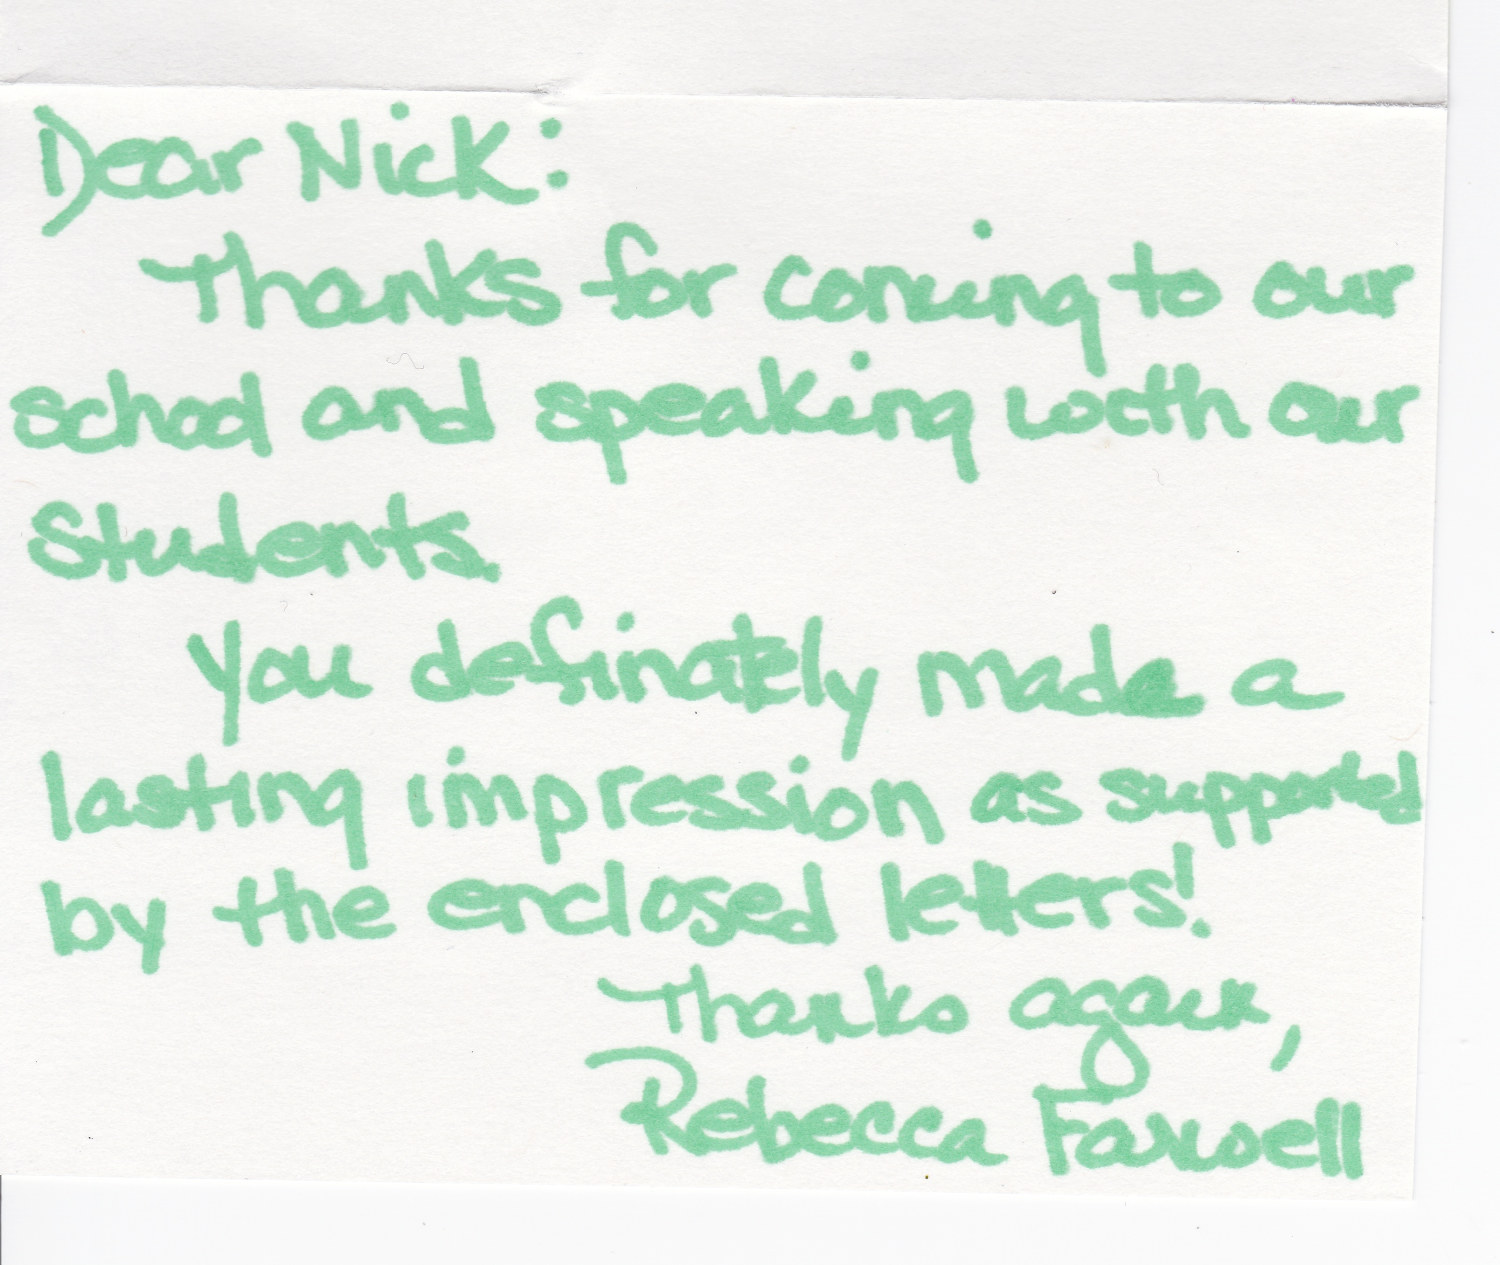 Dear Nick:
Thanks for coming to our
school and speaking with our
Students.
You definately made a
lasting impression as supported
by the enclosed letters!
Thanks again,
Rebecca Farwell